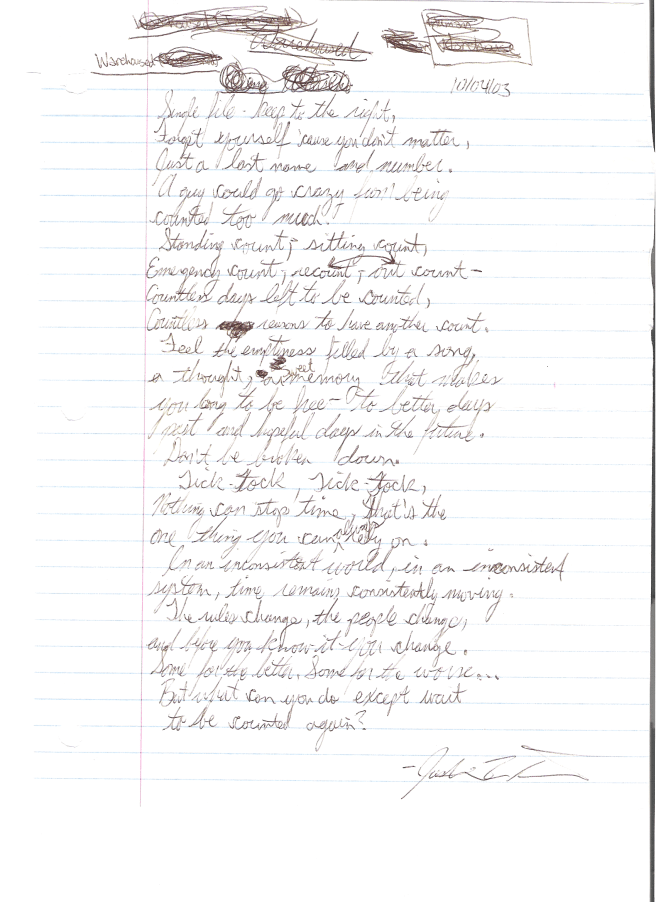 Warehoused
Human
Warehouse
Warehoused
10/04/03
Single file - keep to the right,
Forget yourself 'cause you don't matter,
Just a last name and number.
A guy could go crazy from being
counted too much!
Standing count, sitting count,
Emergency count, recount, out count -
Countless days left to be counted,
Countless reasons to have another count.
Feel the emptiness filled by a song,
a thought, a sweet memory that makes
you long to be free - to better days
past and hopeful days in the future.
Don't be broken down.
Tick-tock, Tick-tock,
Nothing can stop time, that's the
one thing you can always rely on.
In an inconsistent world, in an inconsistent
system, time remains consistently moving.
The rules change, the people change,
and before you know it - you change.
Some for the better, Some for the worse...
But what can you do except wait
to be counted again?